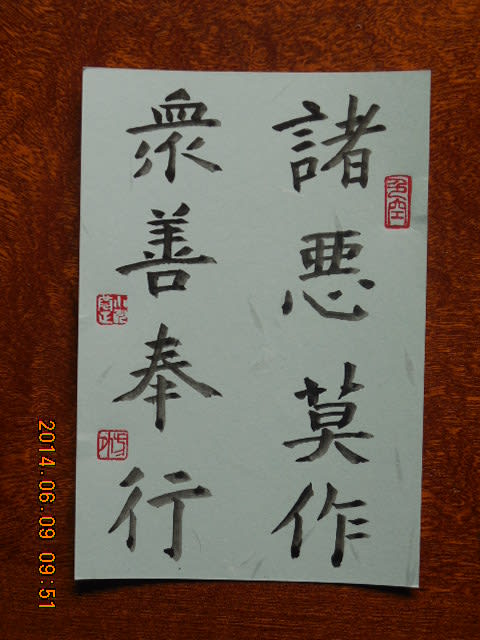 諸悪莫作
衆善奉行
2014.06.09 09:51